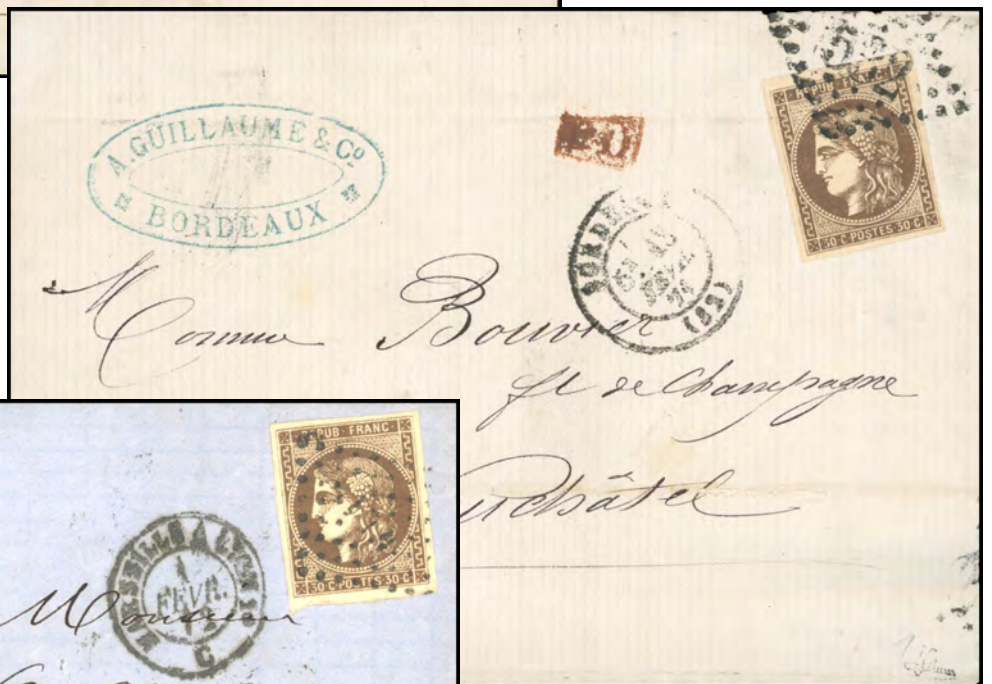 A. GUILLAUME & Cº
BORDEAUX
PD
REPUB·FRANC·
30 C·POSTES·30 C
BORDEAUX
FEVR.
(32)
Bouvier
ft de Champagne
châtel
REPUB·FRANC·
30 C·POSTES·30 C
MARSEILLE A LYON
1
FEVR.
C
Monsieur